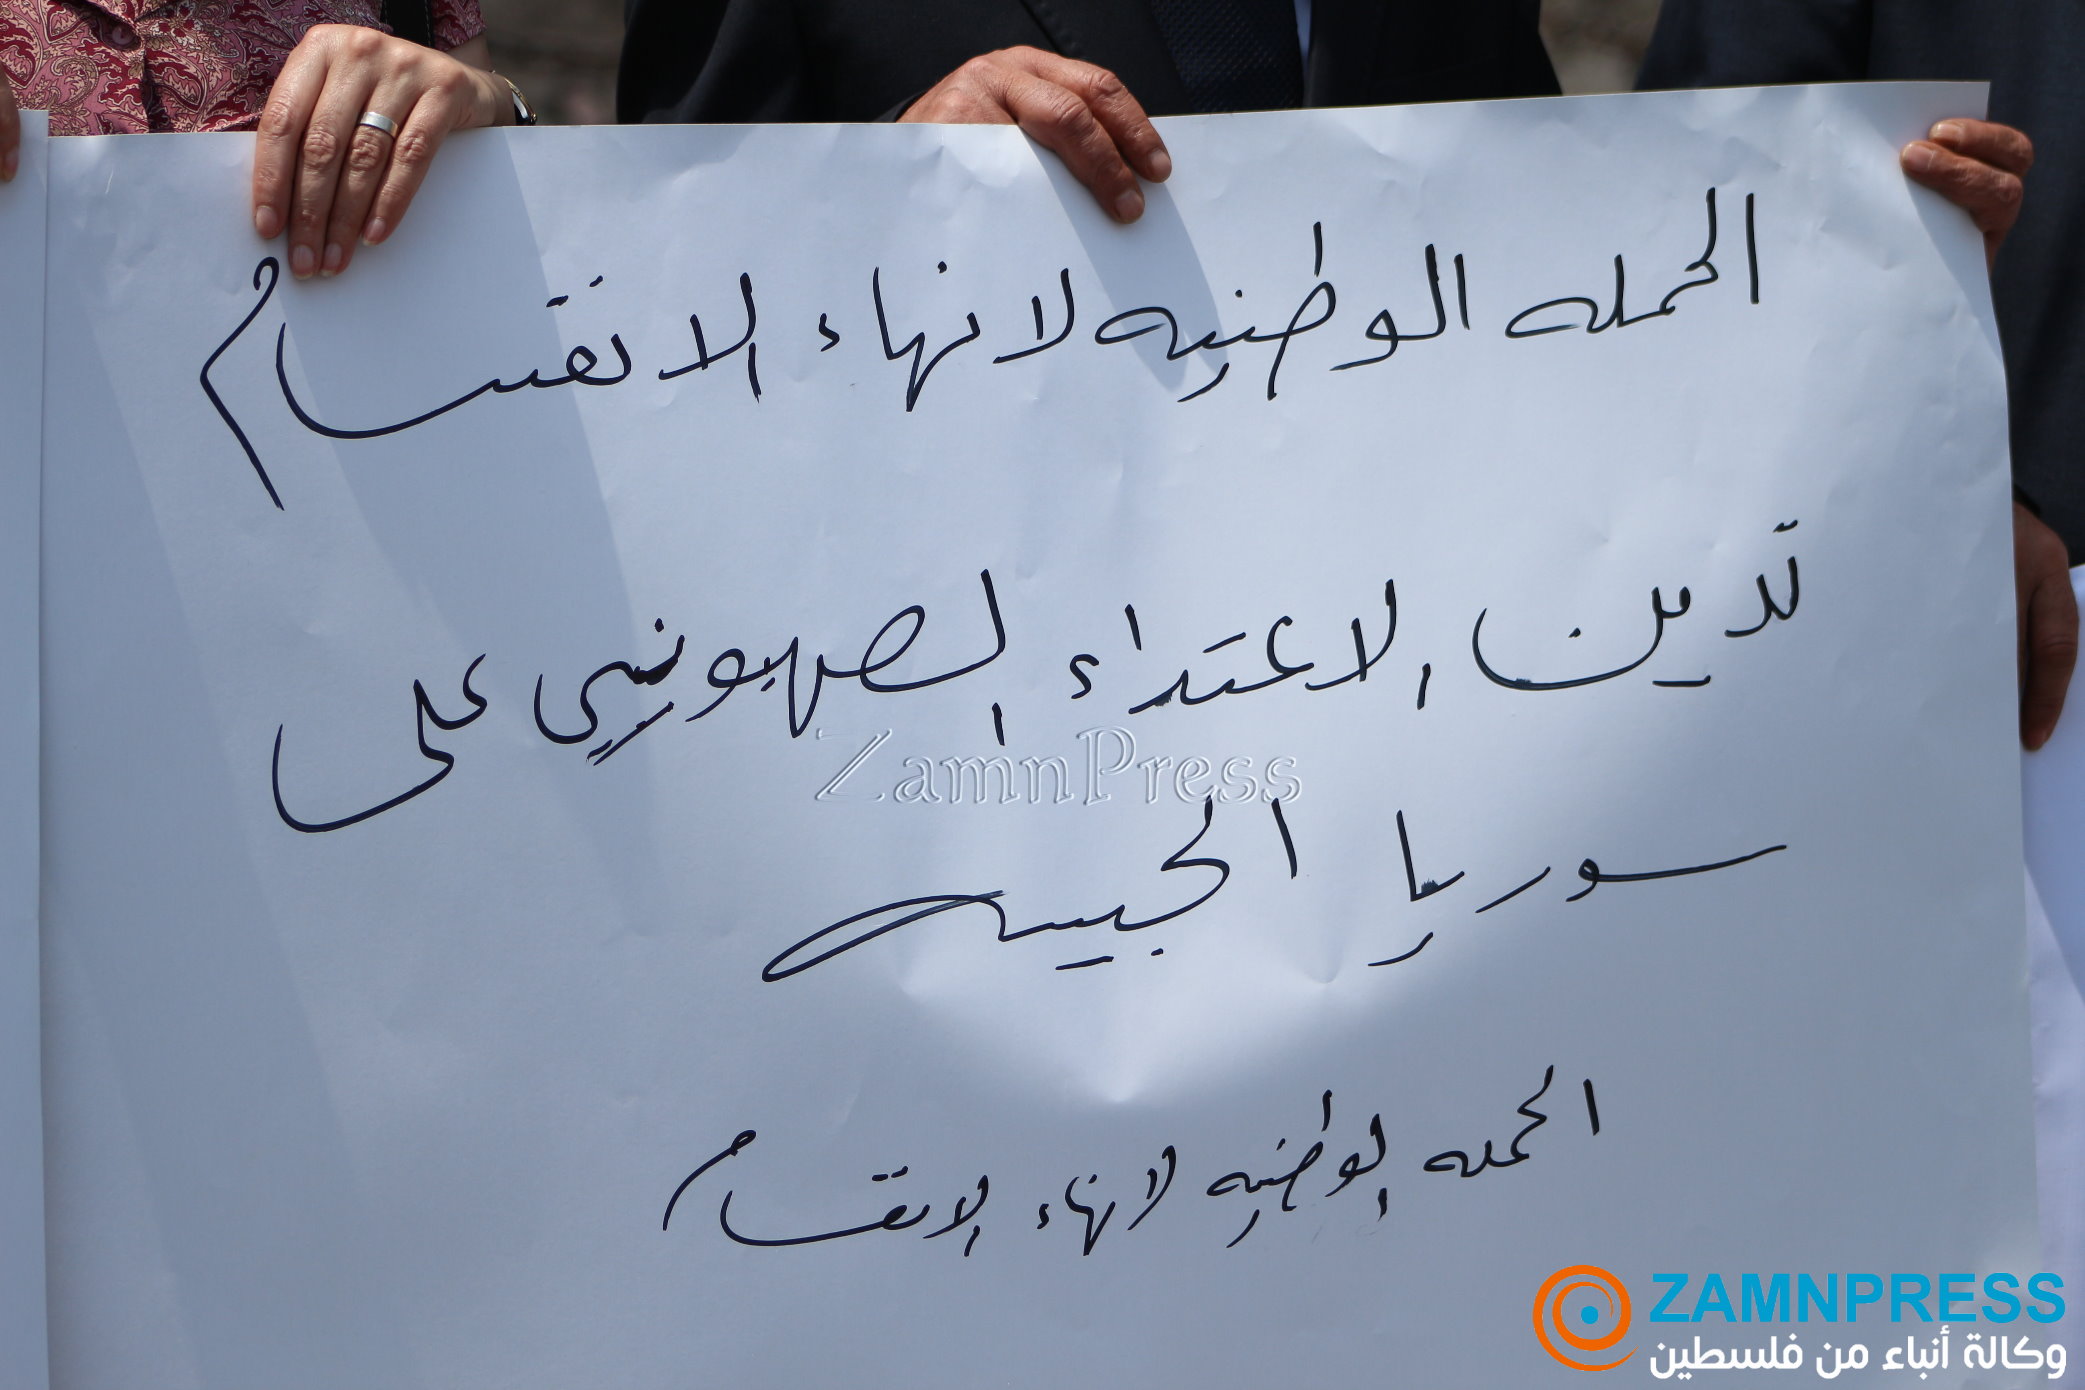 الحمله الوطنيه لانهاء الانقسام
تدين الاعتداء الصهيوني على
ZamnPress
سوريا الحبيبه
الحمله الوطنيه لانهاء الانقسام
ZAMNPRESS
وكالة أنباء من فلسطين